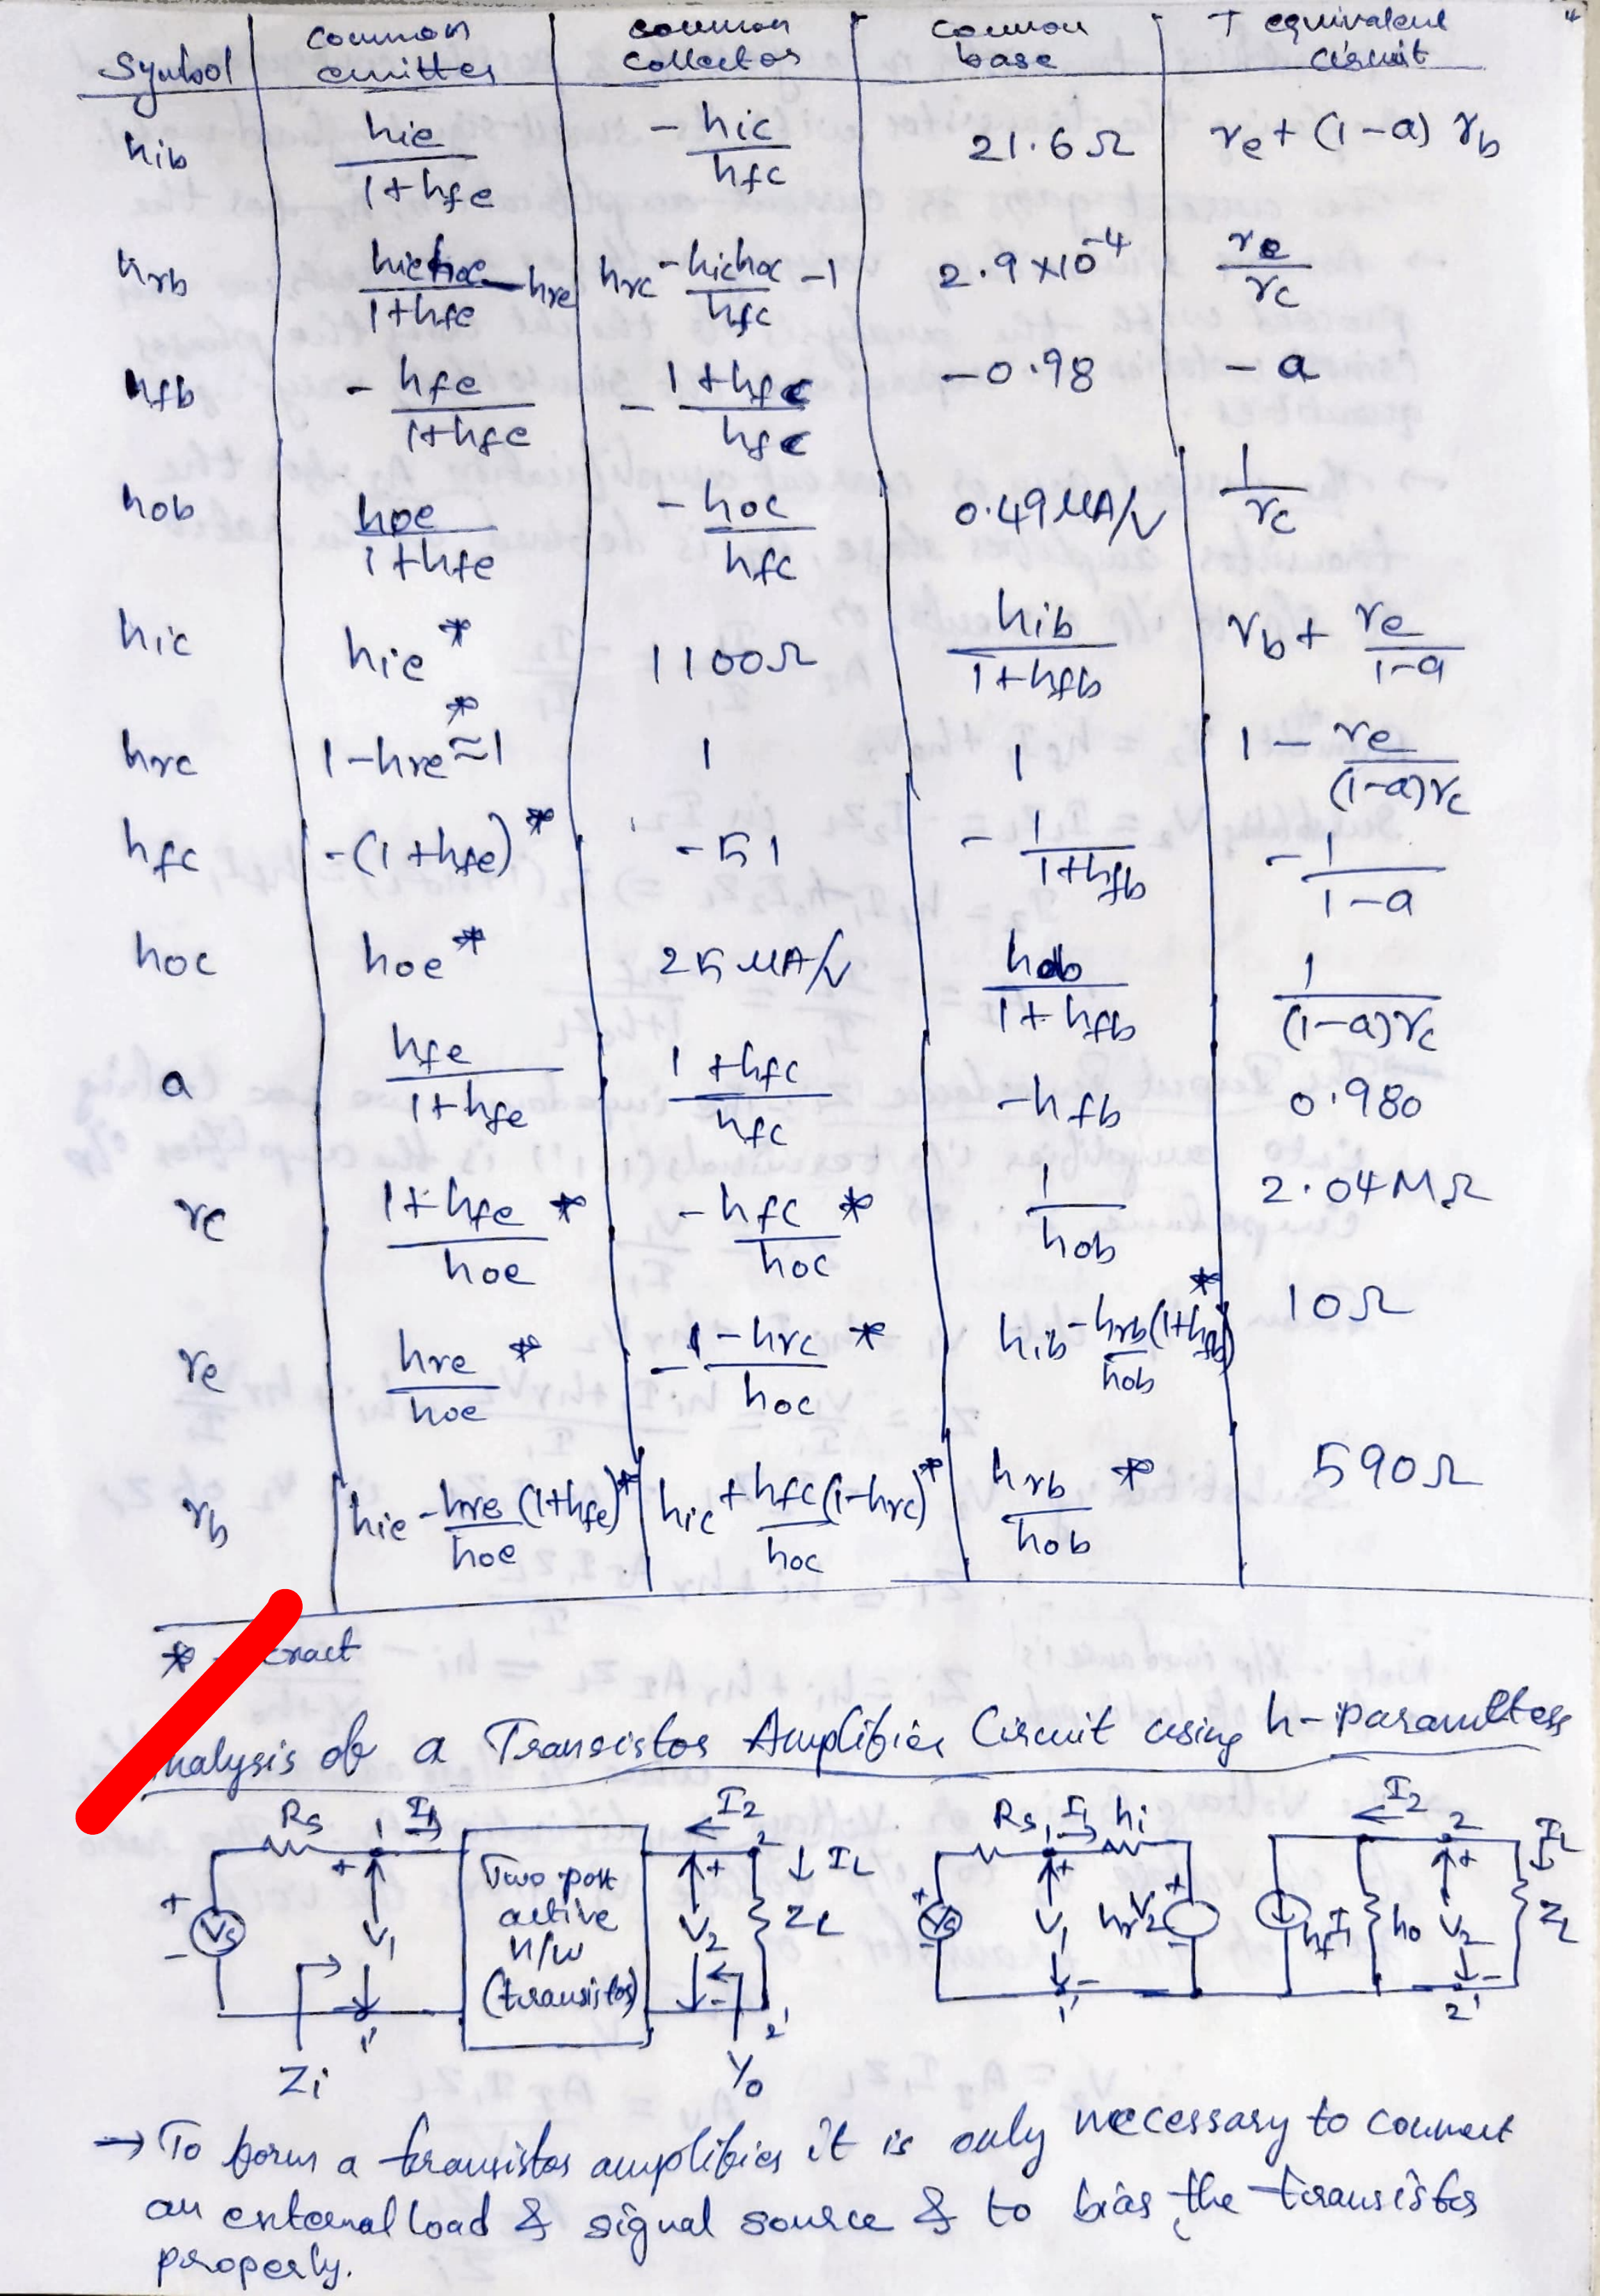 Symbol | common emitter | common collector | common base | T equivalent circuit
hib | hie/(1+hfe) | -hic/hfc | 21.6Ω | re+(1-a)rb
hrb | hiehoe/(1+hfe) -hre | hrc -hichoc/hfc -1 | 2.9×10^-4 | re/rc
hfb | -hfe/(1+hfe) | -(1+hfc)/hfc | -0.98 | -a
hob | hoe/(1+hfe) | -hoc/hfc | 0.49 µA/V | 1/rc
hic | hie* | 1100Ω | hib/(1+hfb) | rb+re/(1-a)
hrc | 1-hre≈1* | 1 | 1 | 1-re/((1-a)rc)
hfc | -(1+hfe)* | -51 | -1/(1+hfb) | -1/(1-a)
hoc | hoe* | 25 µA/V | hob/(1+hfb) | 1/((1-a)rc)
a | hfe/(1+hfe) | (1+hfc)/hfc | -hfb | 0.980
rc | (1+hfe)/hoe* | -hfc/hoc* | 1/hob | 2.04MΩ
re | hre/hoe* | (1-hrc)/hoc* | hib-hrb/hob(1+hfb)* | 10Ω
rb | hie-hre/hoe(1+hfe)* | hic+hfc/hoc(1-hrc)* | hrb/hob* | 590Ω
*
of a Transistor Amplifier Circuit using h-parameters
Rs 1 I1 I2 2 IL Rs 1 I1 hi I2 2 IL
+ Vs - + V1 Two port active n/w (transistor) + V2 - ZL + Vs - + V1 - hrV2 + - hfI1 ho + V2 - ZL
1' 2' 1' 2'
Zi Yo
→ To form a transistor amplifier it is only necessary to connect
an external load & signal source & to bias the transistor
properly.